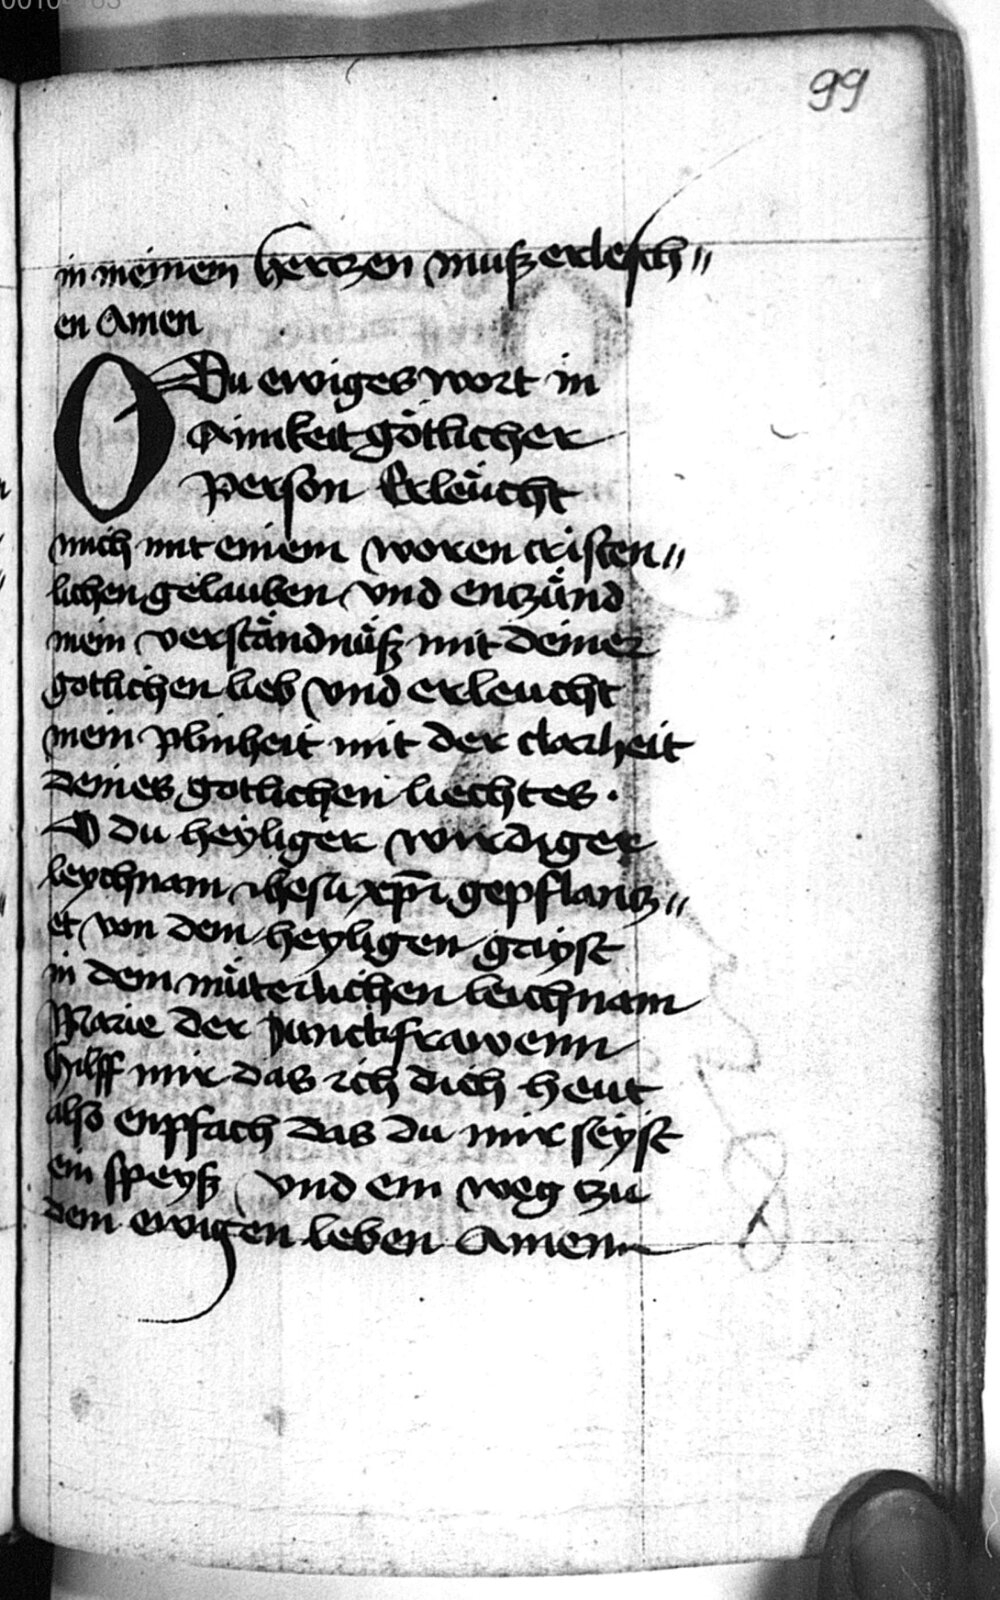 99
in meinem hertzen muß erlesch〃
en Amen
O Du ewiges wort in
Ainikeit götlicher
Person Erleücht
mich mit einem woren cristen〃
lichen gelauben vnd entzünd
mein verständnüß mit deiner
gotlichen lieb vnd erleucht
mein plinheit mit der clarheit
deines gotlichen liechtes .
O du heyliger wirdiger
leychnam ihesu xp̄i gepflantz〃
et von dem heyligen gaiyst
in dem müterlichen leichnam
Marie der Junckfrawenn
hilff mir das ich dich heut
also enpfach das du mir seyst
ein speyß vnd ein weg tzu
dem ewigen leben Amenn